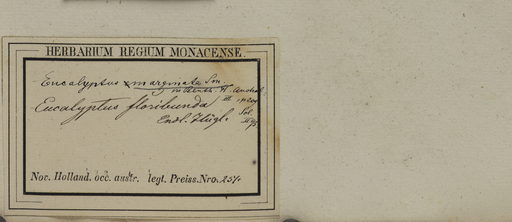 HERBARIUM REGIUM MONACENSE.
Eucalyptus marginata Sm
in Benth. Fl. Austral
III
Eucalyptus floribunda
Endl. Hügl.
Nov. Holland. occ. austr. legt. Preiss. Nro. 251.